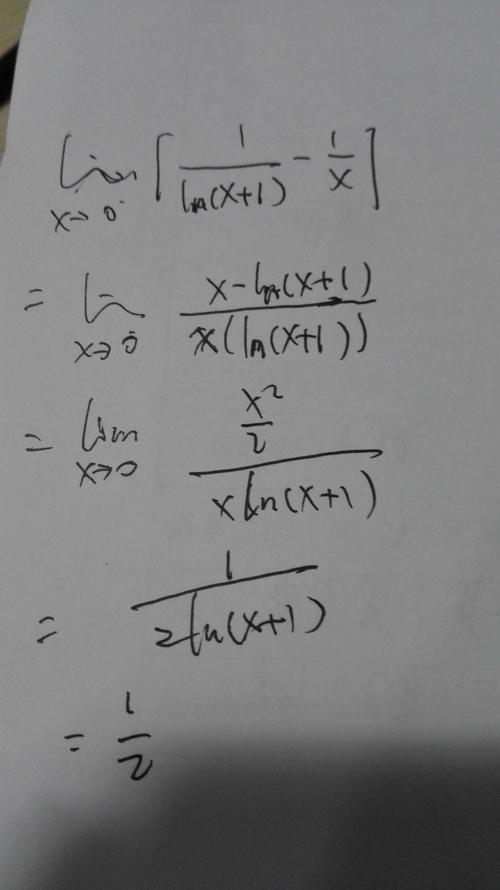 lim x→0 [ 1/ln(x+1) - 1/x ]
= lim x→0 (x-ln(x+1))/(x(ln(x+1)))
= lim x→0 (x²/2)/(x ln(x+1))
= 1/(2ln(x+1))
= 1/2